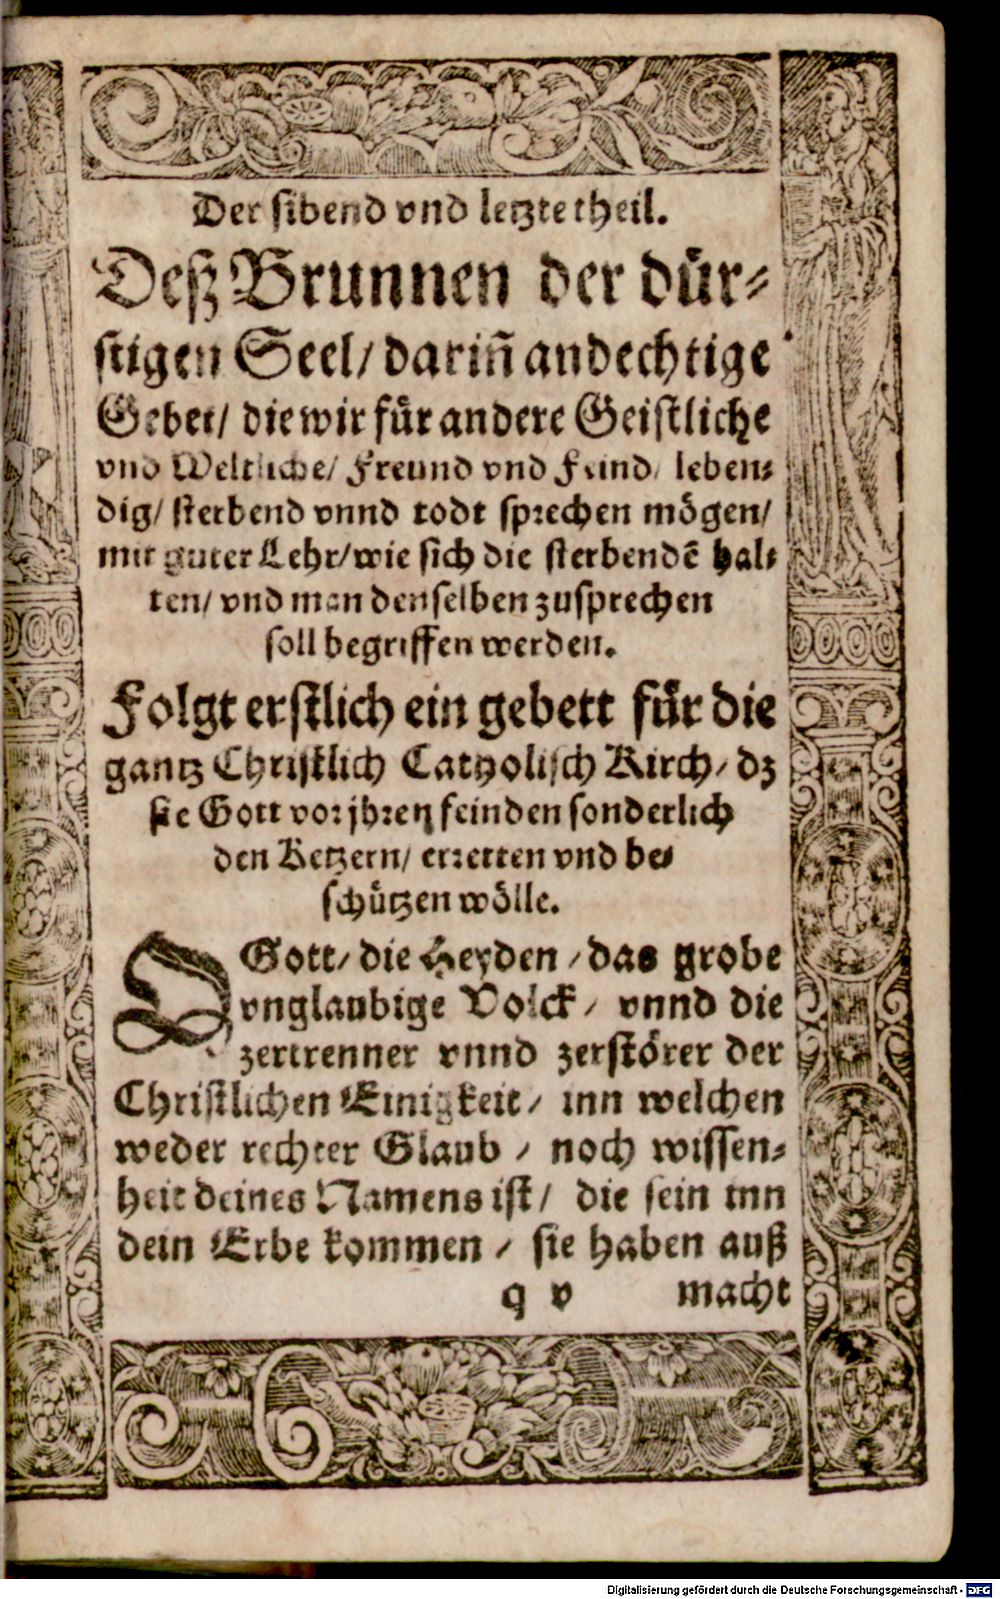 Der sibend vnd letzte theil.
Deß Brunnen der dür⸗
stigen Seel/ dariñ andechtige
Gebet/ die wir für andere Geistliche
vnd Weltliche/ Freund vnd Feind/ leben⸗
dig/ sterbend vnnd todt sprechen mögen/
mit guter Lehr/ wie sich die sterbendē hal⸗
ten/ vnd man denselben zusprechen
soll begriffen werden.
Folgt erstlich ein gebett für die
gantz Christlich Catholisch Kirch/ dz
sie Gott vor jhren feinden sonderlich
den Ketzern/ erretten vnd be⸗
schützen wölle.
O Gott/ die Heyden/ das grobe
vnglaubige Volck/ vnnd die
zertrenner vnnd zerstörer der
Christlichen Einigkeit/ inn welchen
weder rechter Glaub/ noch wissen⸗
heit deines Namens ist/ die sein inn
dein Erbe kommen/ sie haben auß
q v macht
Digitalisierung gefördert durch die Deutsche Forschungsgemeinschaft - DFG